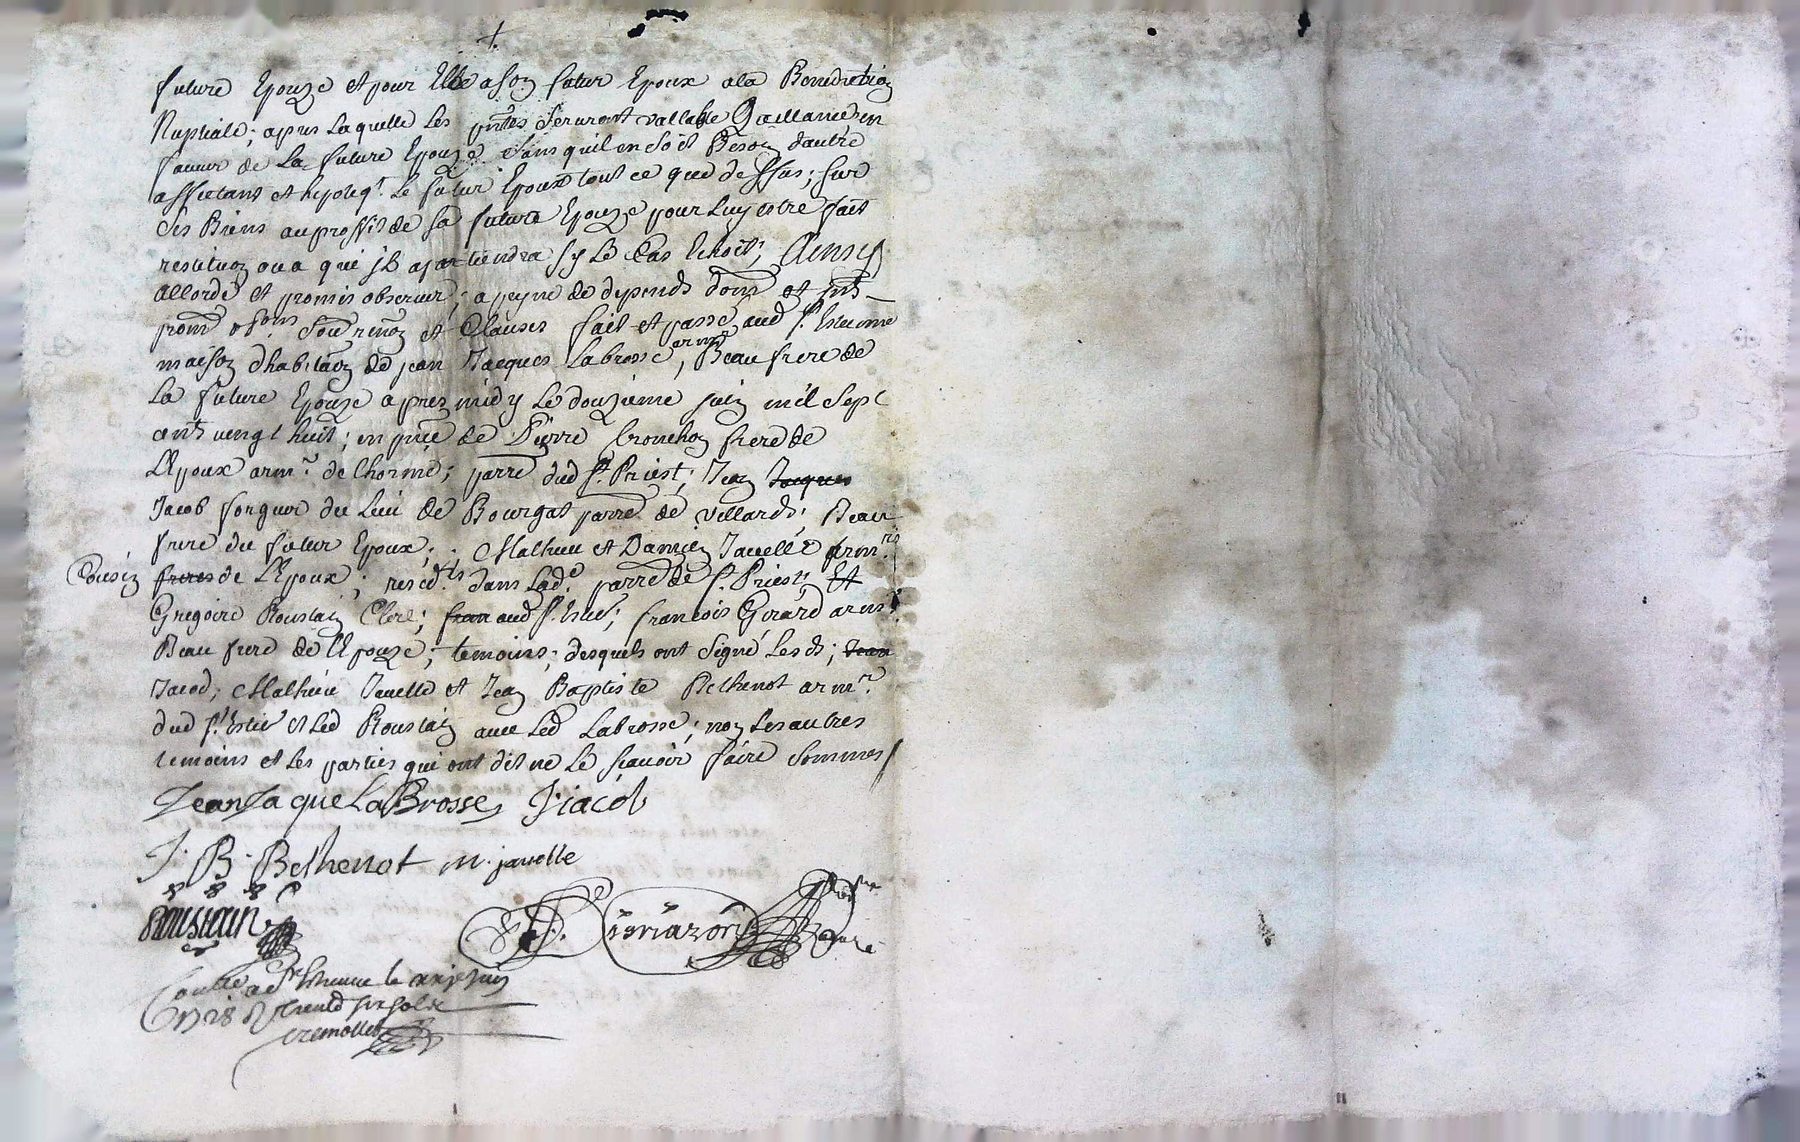 future Epouze et pour Elle a son futur Epoux a la Benediction
Nuptiale; apres Laquelle Les pntes serviront vallable Quittance en
faveur de La future Epouze sans quil en soit Besoin dautre
affectant et hipoteqt Le futur Epoux tout ce que dessus; sur
ses Biens au proffit de sa future Epouze pour Luy estre fait
restituon ou a qui jl apartiendra sy Le Cas Echoit; Ainsy
accordé et promis observer; a peyne de depends dom et jnts
prom obons soumron et Clauses fait et passé aud St Estienne
maison dhabitaon de jean Jacques Labrosse armr, Beau frere de
La future Epouze apres midy Le douzieme juin mil sept
cents vingt huit; en pnce de Pierre Cronchon frere de
LEpoux armr de Lhorme; parre dud St Priest; Jean Jacques
Jacob forgeur du Lieu de Bourgat parre de villards; Beau
frere du futur Epoux; Mathieu et Damien Javelle armrs
Cousin freres de LEpoux; resedts dans Lade parre de St Priest; Et
Gregoire Roustain Clerc; aud St Estne; francois Girard armr
Beau frere de LEpouze; temoins; desquels ont signé Lesds; Jean
Jacob; Mathieu Javelle et Jean Baptiste Bethenot armr
dud St Estne et Led Roustain avec Led Labrosse; non Les autres
temoins et Les parties qui ont dit ne Le scavoir faire sommes
Jean Jaque LaBrosse J: jacob
J. B. Bethenot m. javelle
Roustain
Conllé a St Etienne le xxje juin
1728 Receu sols